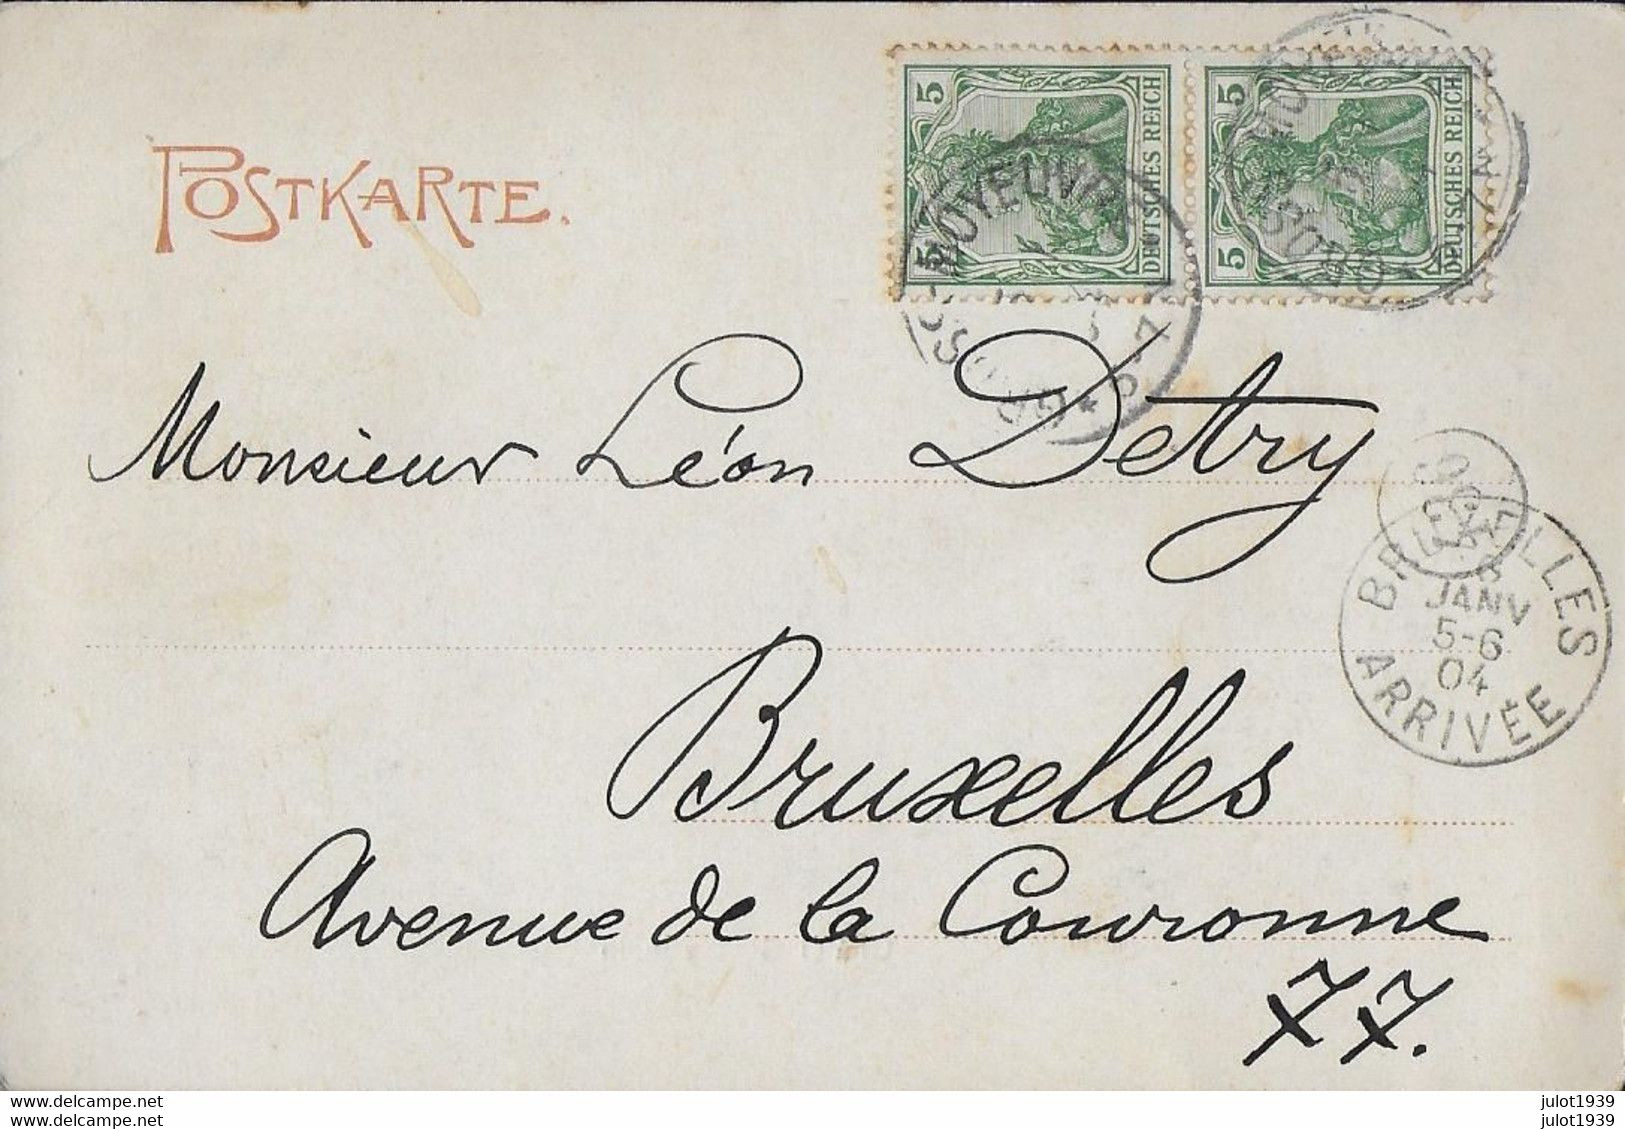 POSTKARTE.
5 5 DEUTSCHES REICH
5 5 DEUTSCHES REICH
MOYEUVRE
Monsieur Léon Detry
BRUXELLES
JANV
5-6
04
ARRIVÉE
Bruxelles
Avenue de la Couronne
77.
delcampe.net
delcampe.net
julot1939
julot1939